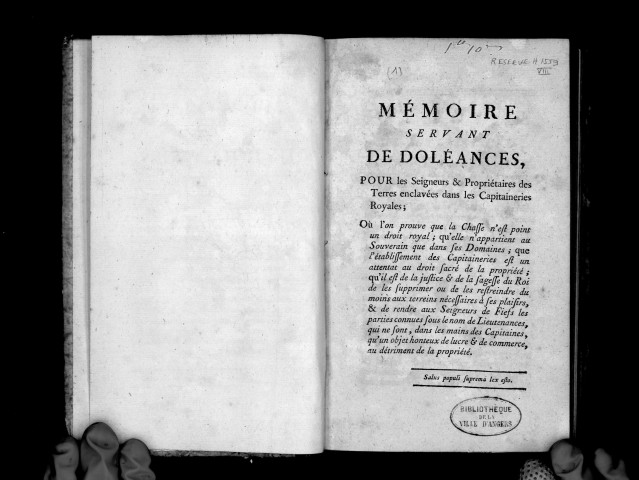 (1)
RESERVE H 1559
VIII
MÉMOIRE
SERVANT
DE DOLÉANCES,
POUR les Seigneurs & Propriétaires des
Terres enclavées dans les Capitaineries
Royales ;
Où l'on prouve que la Chasse n'est point
un droit royal ; qu'elle n'appartient au
Souverain que dans ses Domaines ; que
l'établissement des Capitaineries est un
attentat au droit sacré de la propriété ;
qu'il est de la justice & de la sagesse du Roi
de les supprimer ou de les restreindre du
moins aux terreins nécessaires à ses plaisirs,
& de rendre aux Seigneurs de Fiefs les
parties connues sous le nom de Lieutenances,
qui ne sont, dans les mains des Capitaines,
qu'un objet honteux de lucre & de commerce,
au détriment de la propriété.
Salus populi suprema lex esto.
BIBLIOTHÈQUE
DE LA
VILLE D'ANGERS